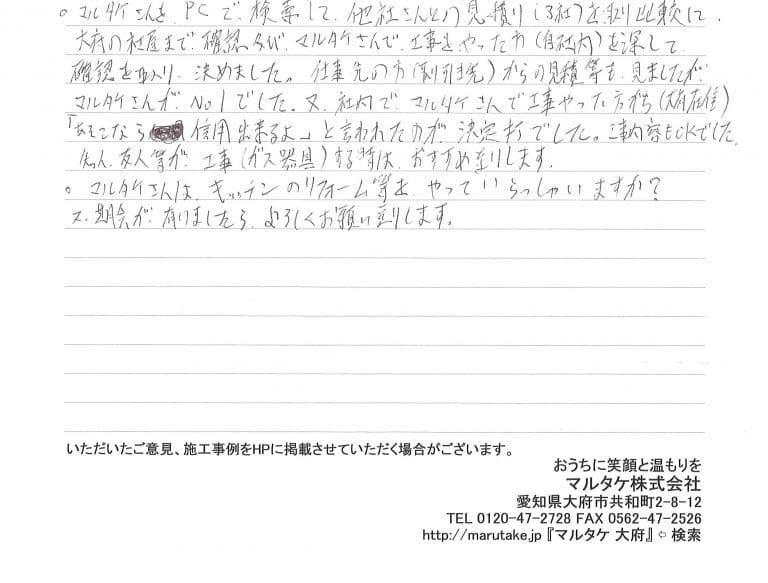 ○ マルタケさんを、PCで、検索して、他社さんとの見積り(3社)を取り比較し
大府の社屋まで、確認及び、マルタケさんで、工事をやった方(自社内)を探して
確認を取り、決めました。仕事先の方(取引き先)からの見積等も、見ましたが
マルタケさんが、No1でした。又、社内で、マルタケさんで工事やった方から(大府在住)
「あそこなら 信用出来るよ」と言われたのが、決定打でした。工事内容もOKでした。
知人、友人等が、工事(ガス器具)する時は、おすすめ致します。
○ マルタケさんは、キッチンのリフォーム等を、やっていらっしゃいますか?
又、機会が、有りましたら、よろしくお願い致します。
いただいたご意見、施工事例をHPに掲載させていただく場合がございます。
おうちに笑顔と温もりを
マルタケ株式会社
愛知県大府市共和町2-8-12
TEL 0120-47-2728 FAX 0562-47-2526
http://marutake.jp 『マルタケ 大府』⇦ 検索